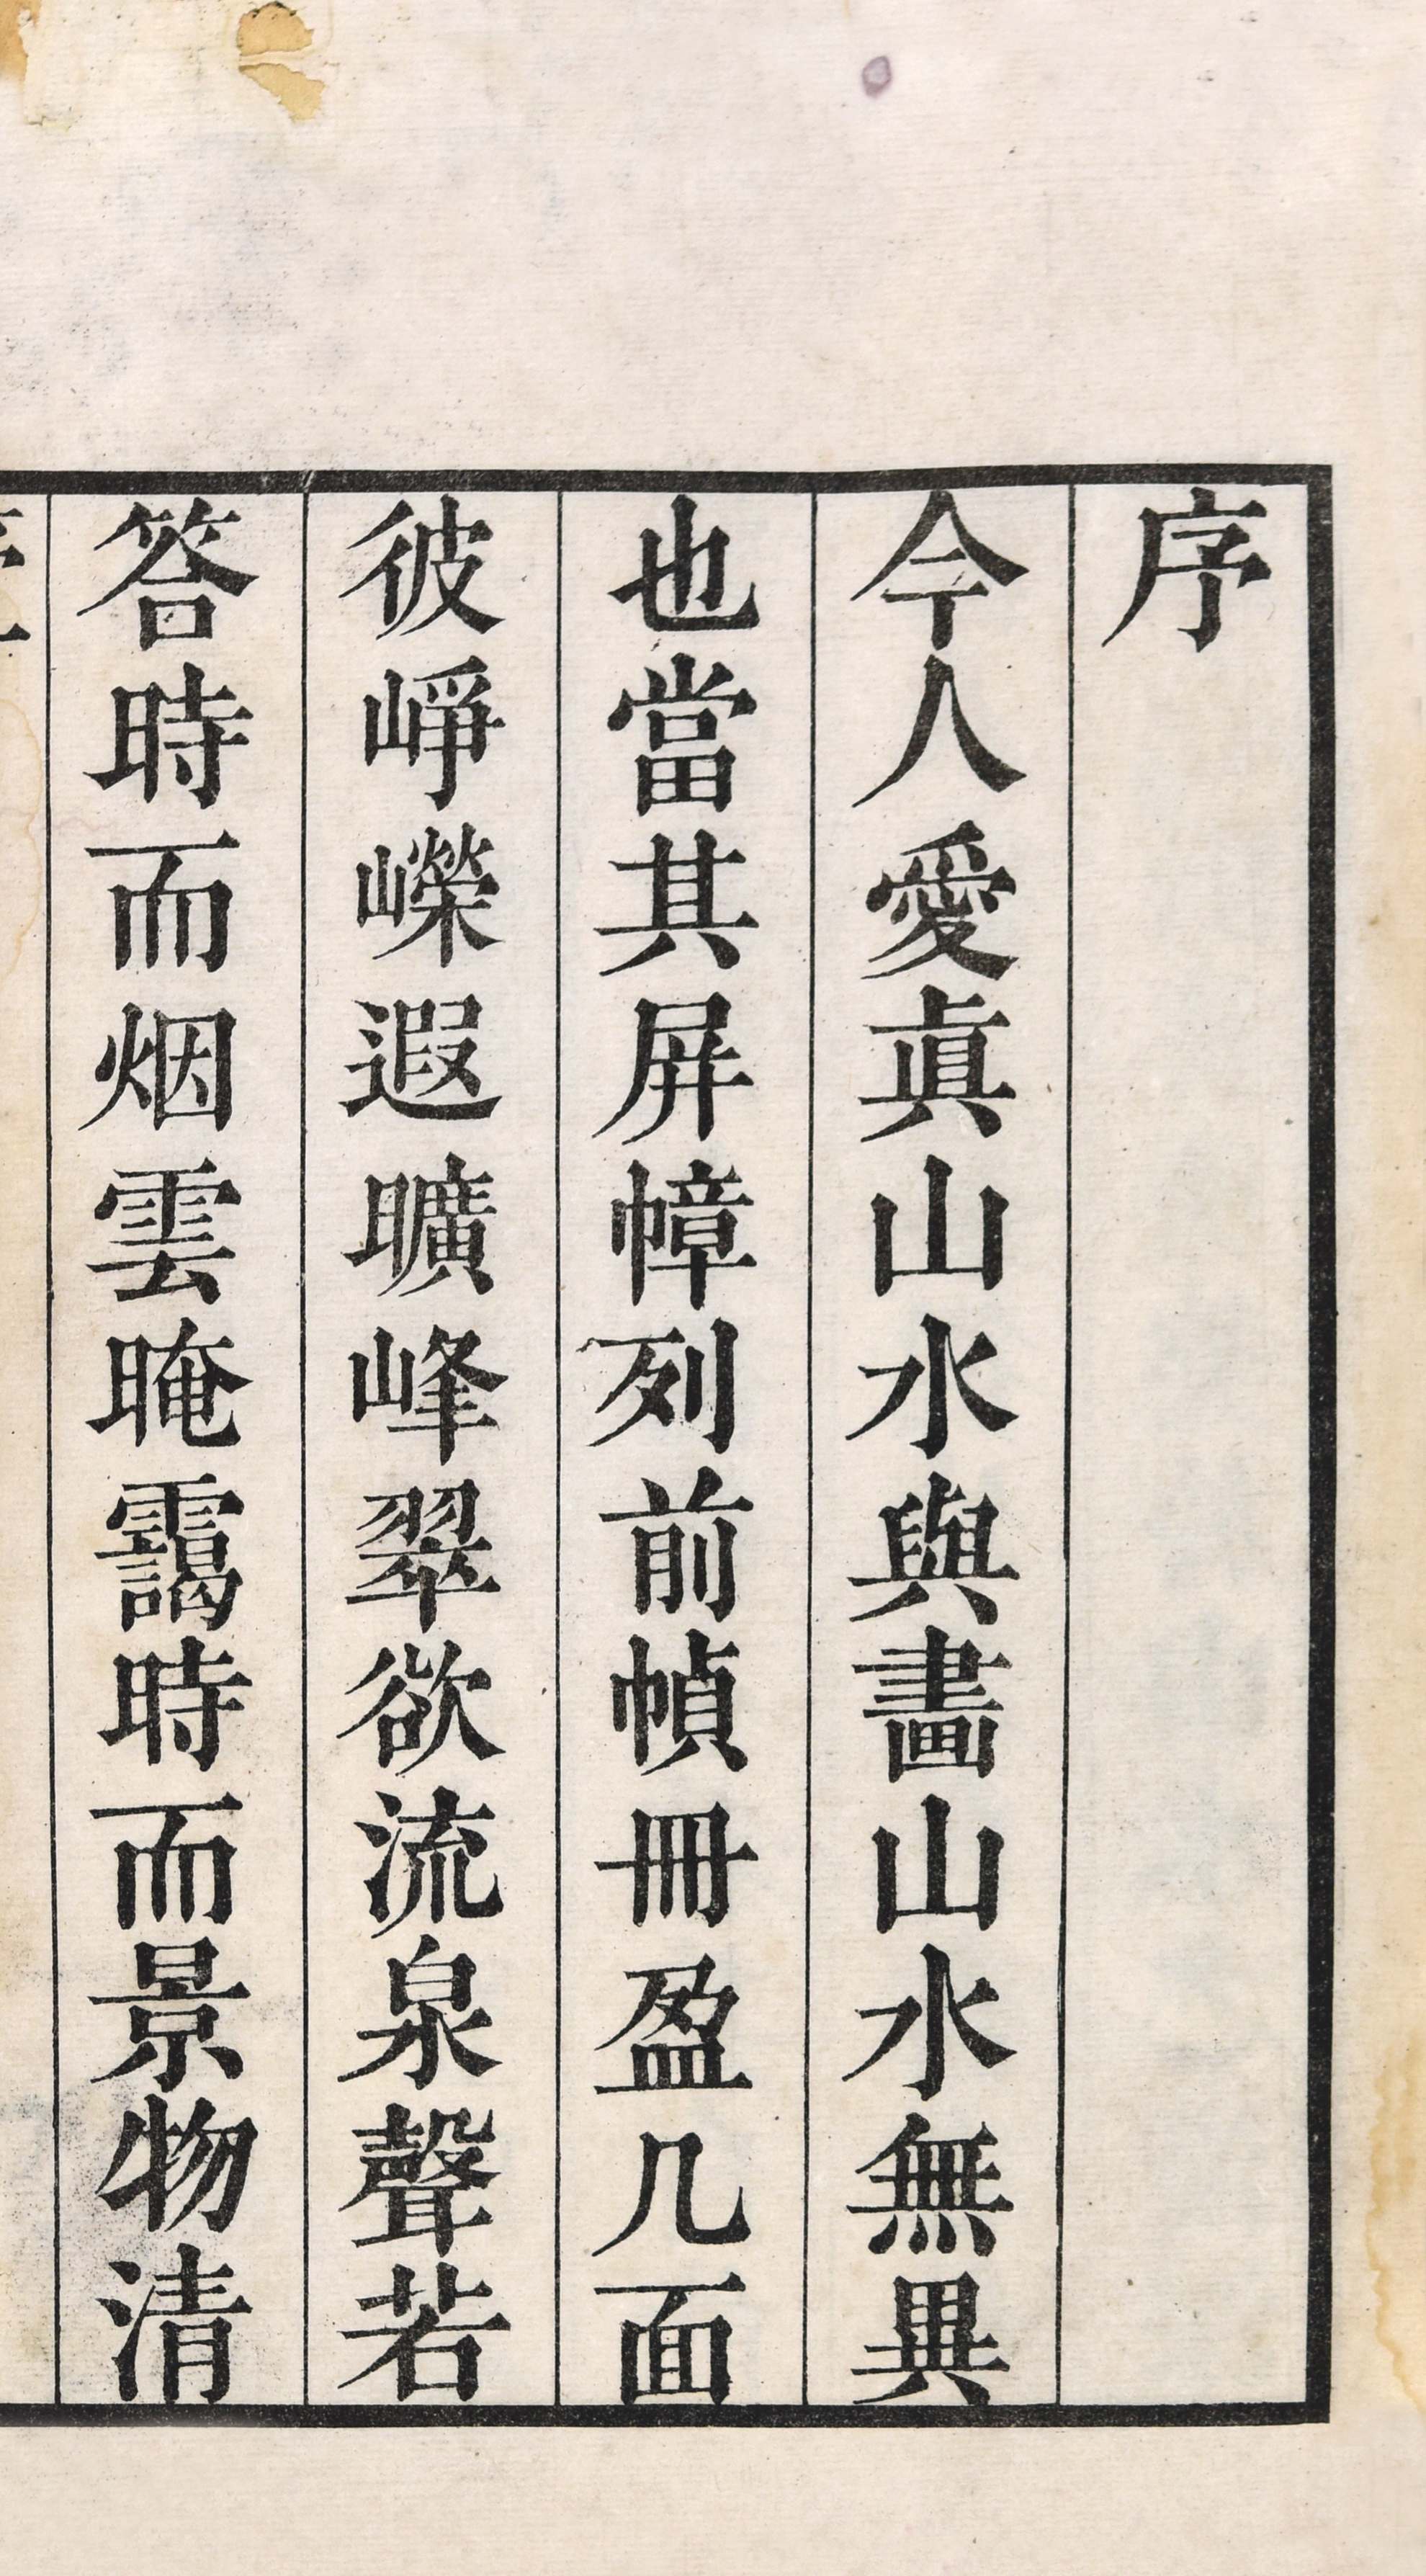 序
今人愛眞山水與畫山水無異
也當其屏幛列前幀冊盈几面
彼崢嶸遐曠峰翠欲流泉聲若
答時而烟雲晻靄時而景物清